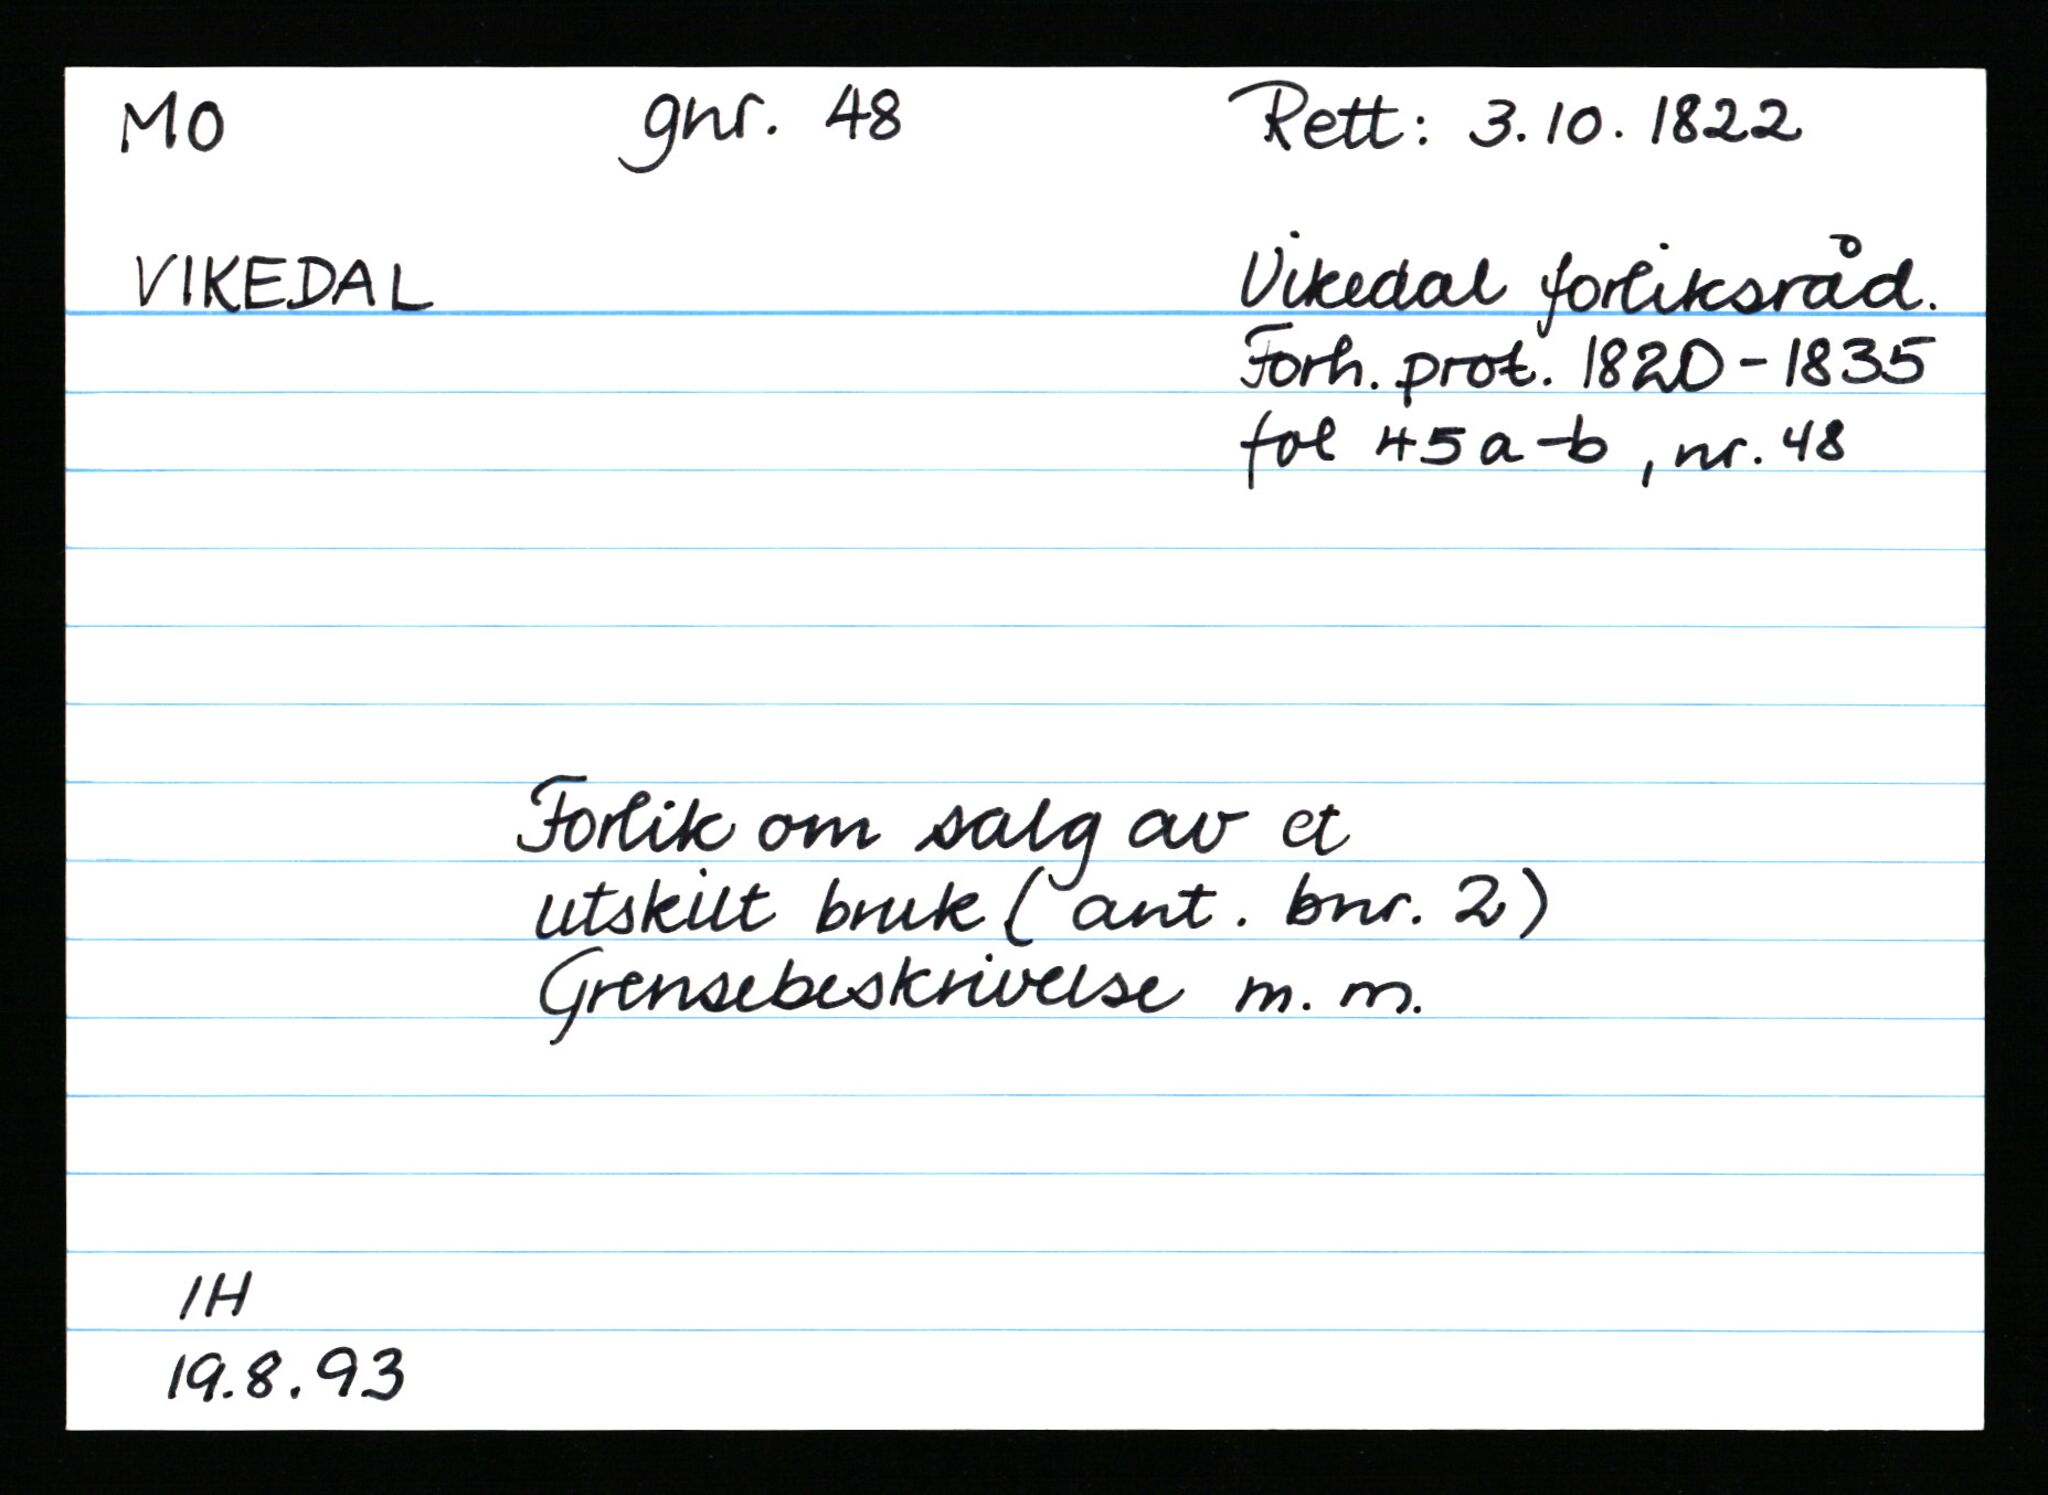 MO gnr. 48 Rett: 3.10.1822
VIKEDAL Vikedal forliksråd.
Forh. prot. 1820-1835
fol 45a-b, nr. 48
Forlik om salg av et
utskilt bruk (ant. bnr. 2)
Grensebeskrivelse m.m.
IH
19.8.93